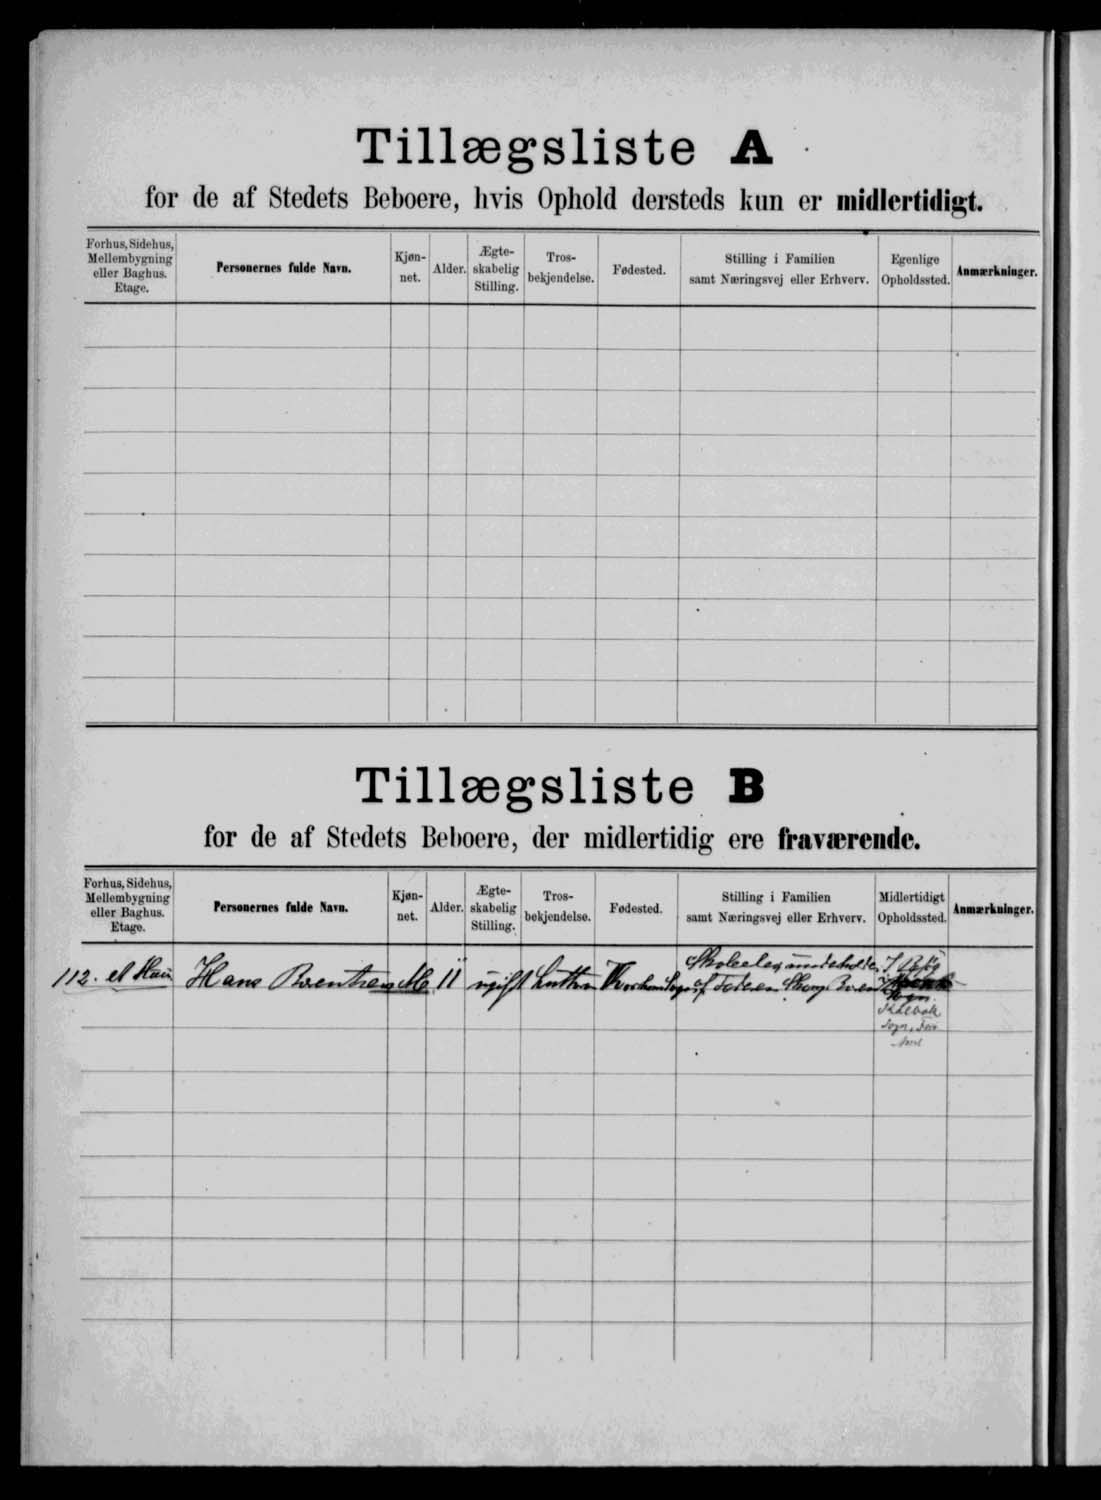 Tillægsliste A
for de af Stedets Beboere, hvis Ophold dersteds kun er midlertidigt.
Forhus, Sidehus,
Mellembygning
eller Baghus.
Etage.
Personernes fulde Navn.
Kjøn-
net.
Alder.
Ægte-
skabelig
Stilling.
Tros-
bekjendelse.
Fødested.
Stilling i Familien
samt Næringsvej eller Erhverv.
Egenlige
Opholdssted.
Anmærkninger.
Tillægsliste B
for de af Stedets Beboere, der midlertidig ere fraværende.
Forhus, Sidehus,
Mellembygning
eller Baghus.
Etage.
Personernes fulde Navn.
Kjøn-
net.
Alder.
Ægte-
skabelig
Stilling.
Tros-
bekjendelse.
Fødested.
Stilling i Familien
samt Næringsvej eller Erhverv.
Midlertidigt
Opholdssted.
Anmærkninger.
112. et
Hans
M
11
ugift
Sogn
af Faderen
Sogn
Amt